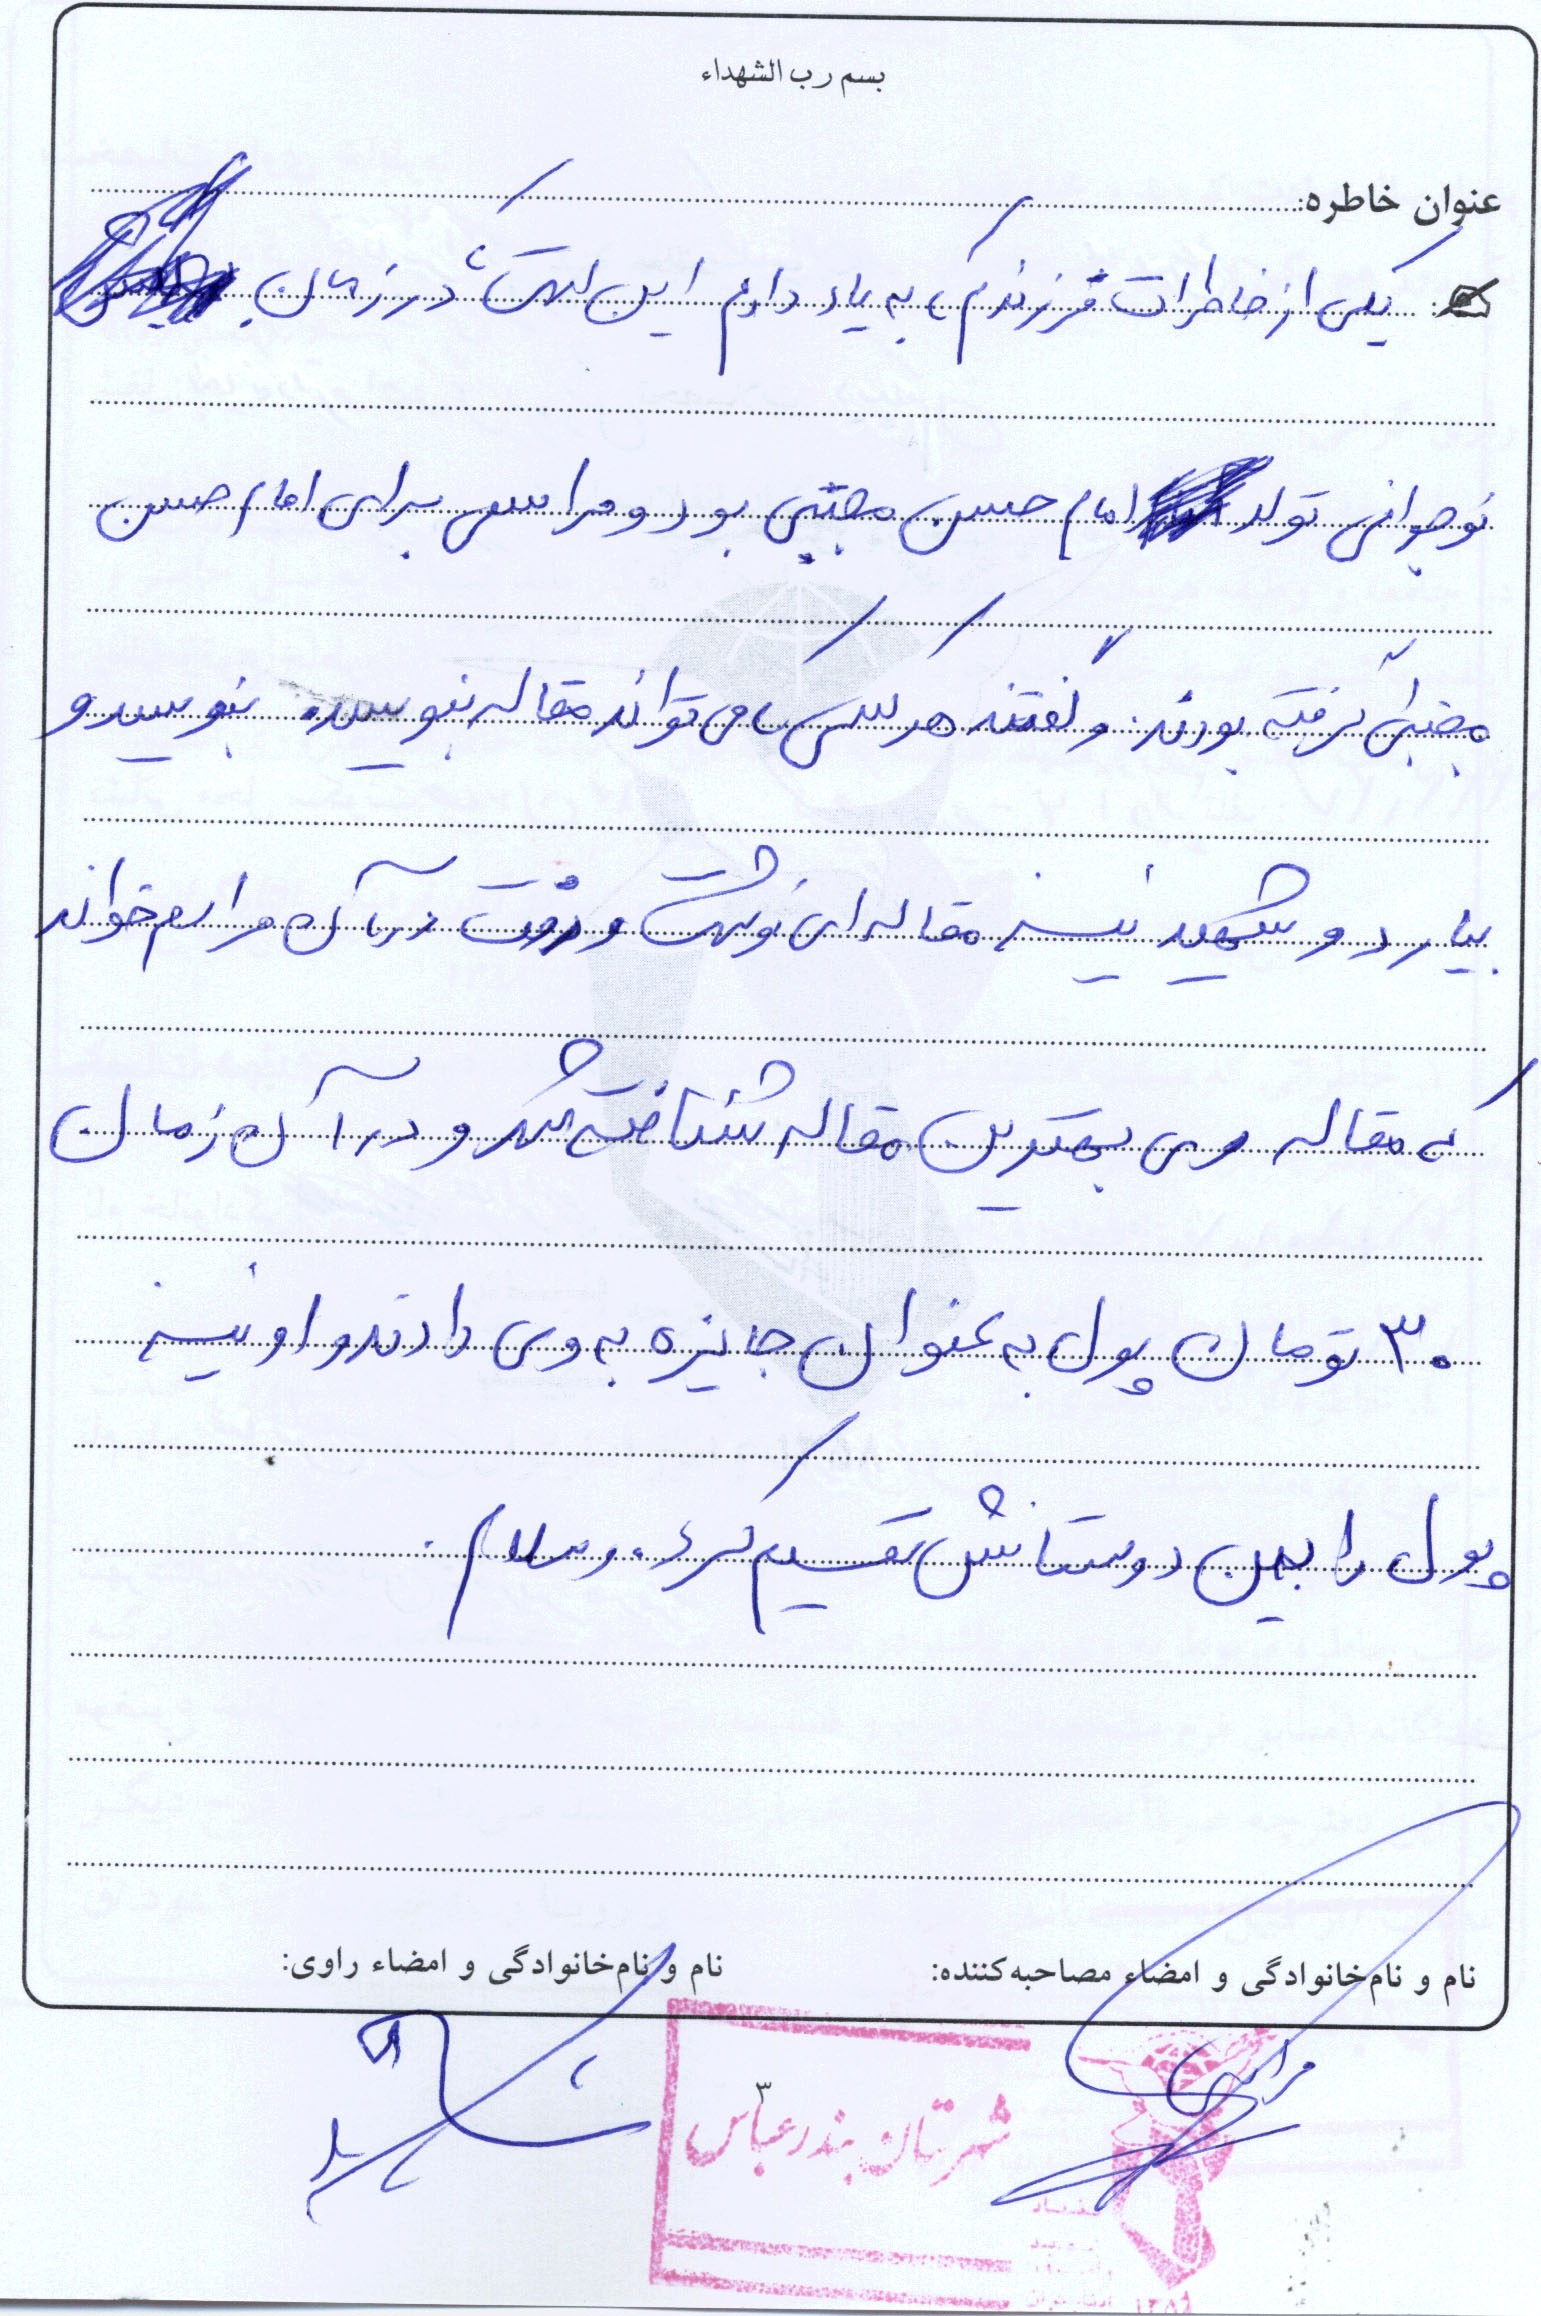 بسم رب الشهداء
عنوان خاطره:
یکی از خاطرات فرزندم، به یاد دارم این است که در زمان
نوجوانی تولد امام حسن مجتبی بود و مراسمی برای امام حسن
مجتبی گرفته بودند. و گفتند هر کسی که می تواند مقاله بنویسد بنویسد و
بیارد و شهید نیز مقاله ای نوشت و رفت در آن مراسم خواند
که مقاله وی بهترین مقاله شناخته شد و در آن زمان
۳۰ تومان پول به عنوان جایزه به وی دادند و او نیز
پول را بین دوستانش تقسیم کرد. وسلام.
نام و نام‌خانوادگی و امضاء مصاحبه‌کننده: نام و نام‌خانوادگی و امضاء راوی:
۳
شهرستان بندرعباس